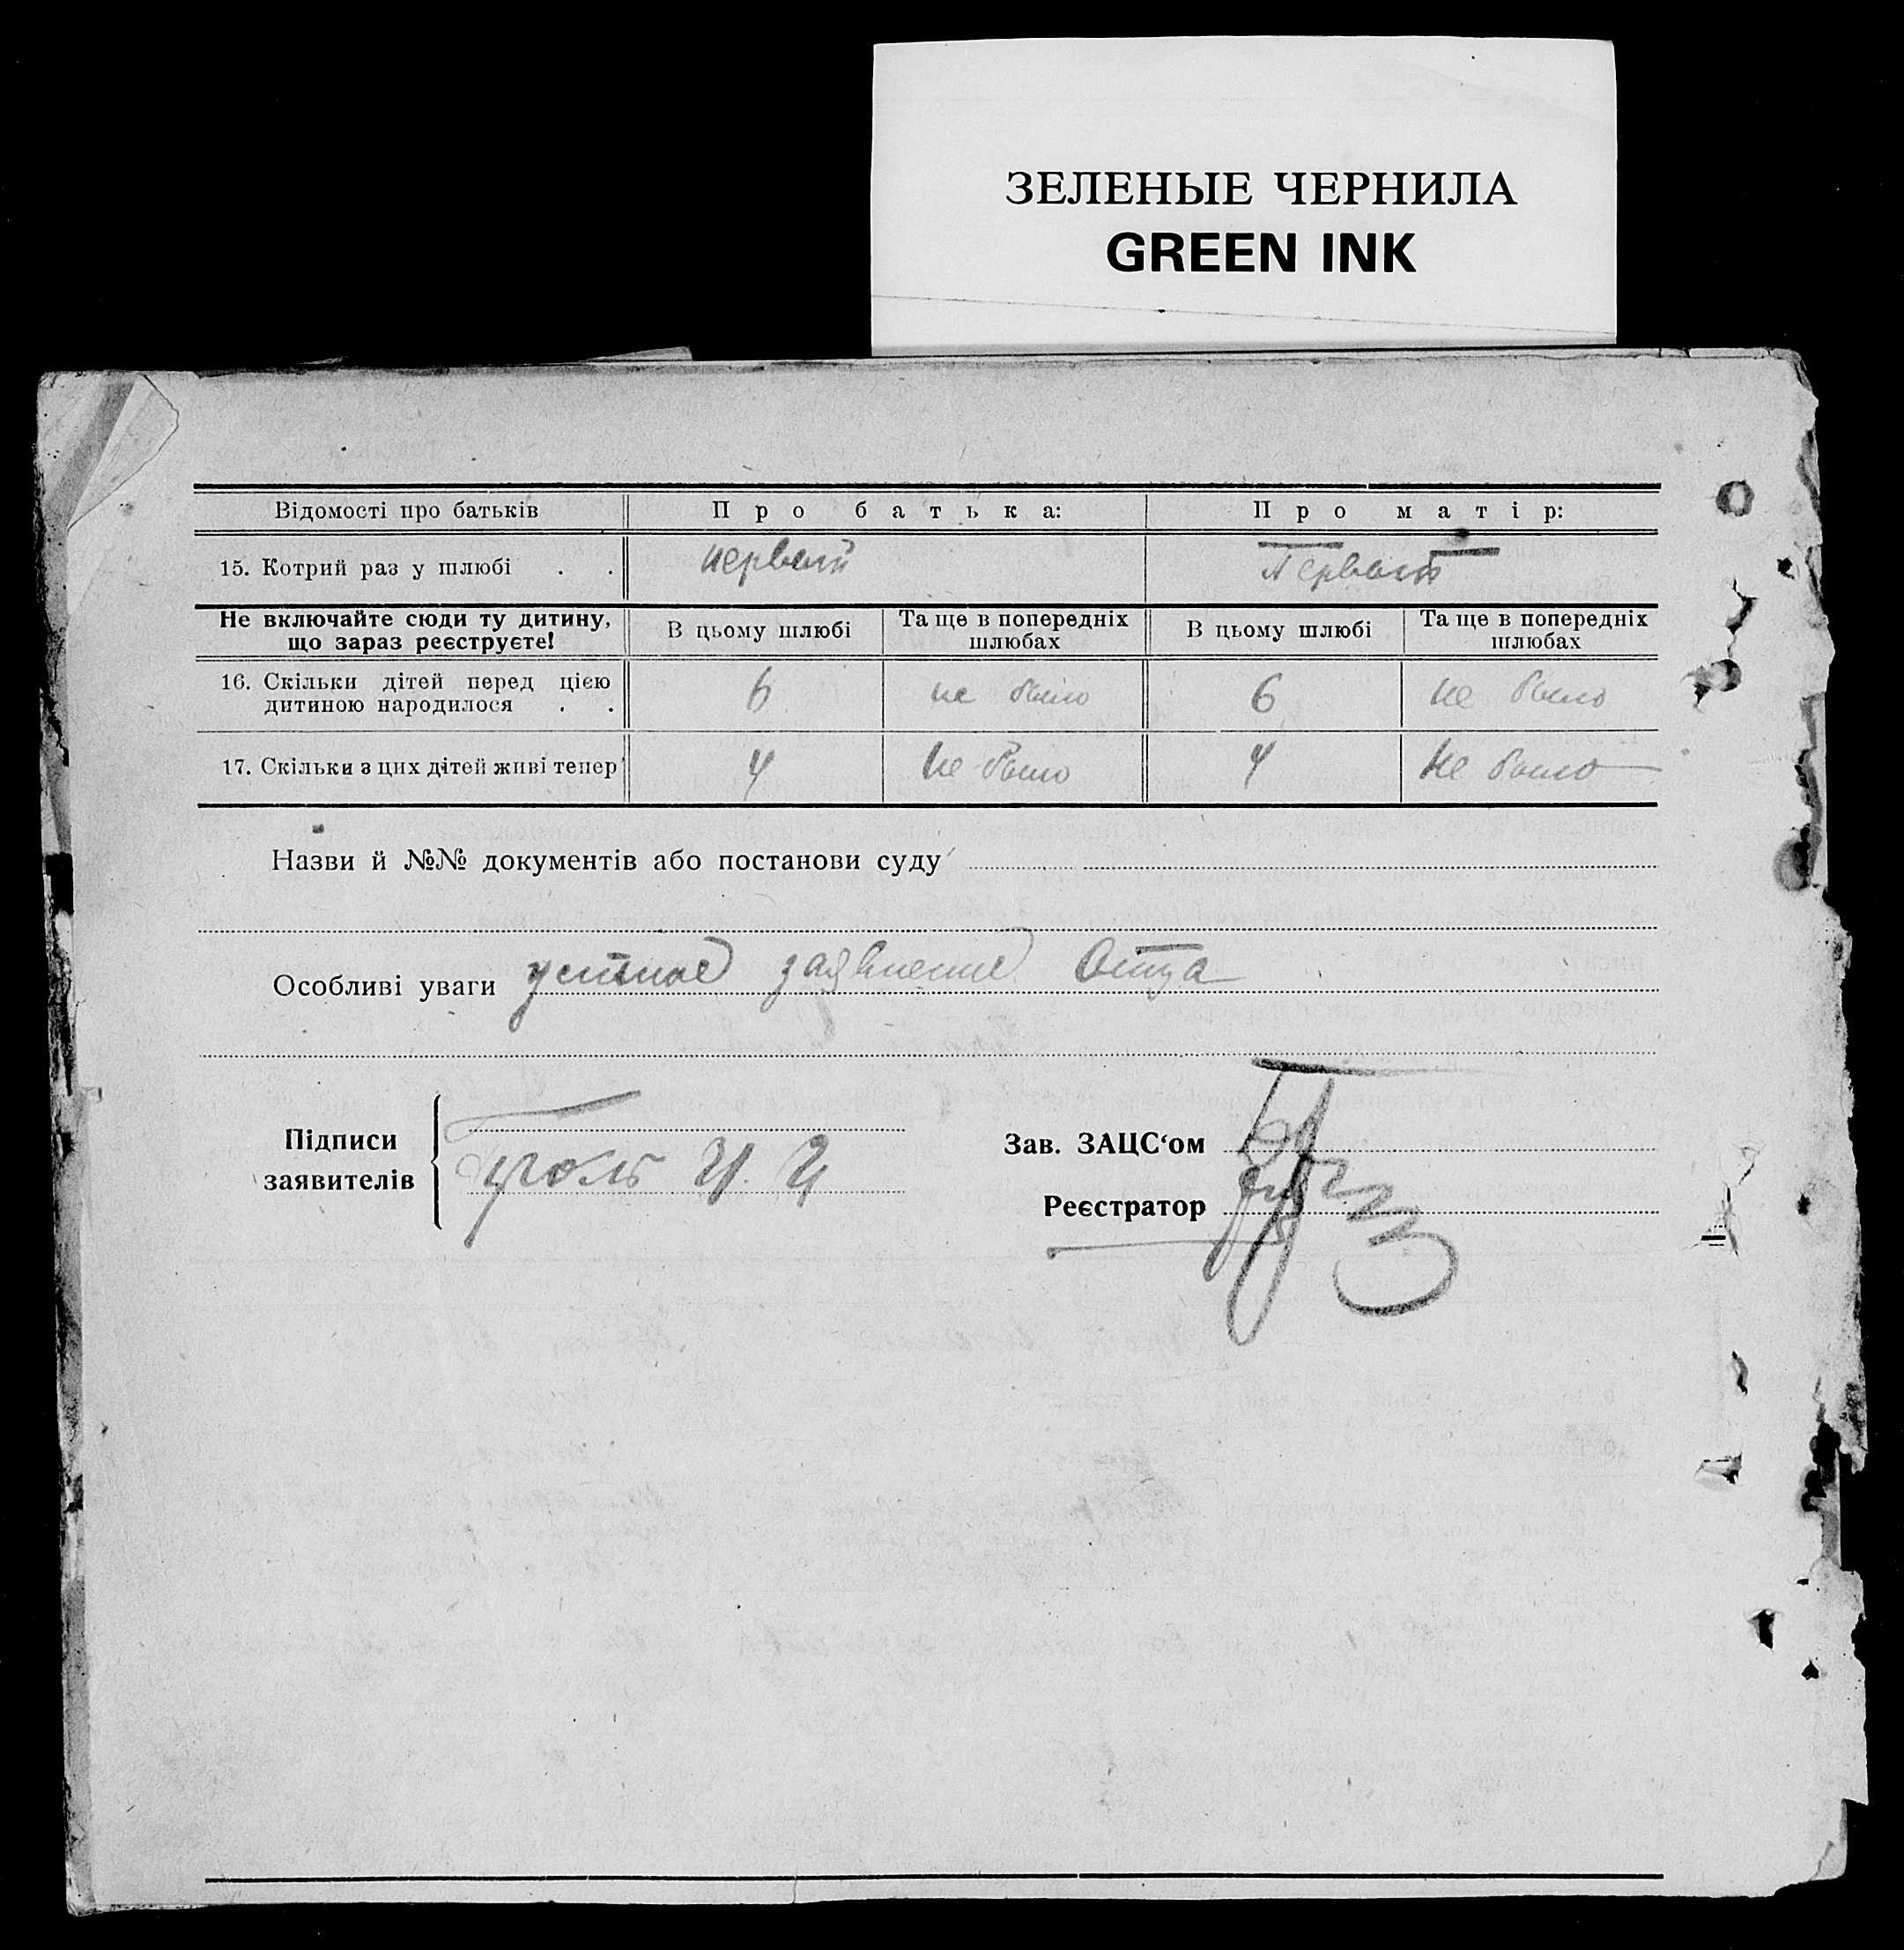 ЗЕЛЕНЫЕ ЧЕРНИЛА
GREEN INK
Відомості про батьків Про батька: Про матір:
15. Котрий раз у шлюбі . . первый Первый
Не включайте сюди ту дитину, що зараз реєструєте! В цьому шлюбі Та ще в попередніх шлюбах В цьому шлюбі Та ще в попередніх шлюбах
16. Скільки дітей перед цією дитиною народилося . . 6 не было 6 не было
17. Скільки з цих дітей живі тепер 4 не было 4 не было
Назви й №№ документів або постанови суду
Особливі уваги устное заявление Отца
Підписи заявителів
Зав. ЗАЦС‘ом
Реєстратор